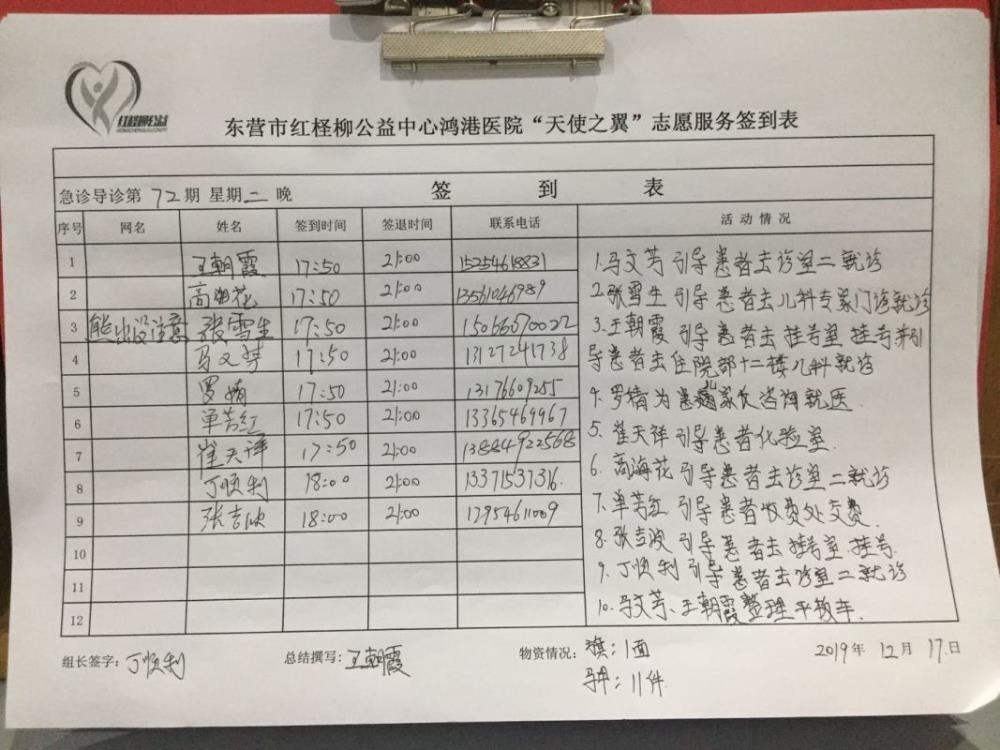 红柽柳公益
东营市红柽柳公益中心鸿港医院“天使之翼”志愿服务签到表
急诊导诊第72期 星期二 晚 签到表
序号 网名 姓名 签到时间 签退时间 联系电话 活动情况
1 王朝霞 17:50 21:00 15254618831
2 高海花 17:50 21:00 13561046989
3 熊出没注意 张雪生 17:50 21:00 15066670022
4 马文芳 17:50 21:00 13127241738
5 罗婧 17:50 21:00 13176609255
6 单芳红 17:50 21:00 13365469967
7 崔天祥 17:50 21:00 13884922568
8 丁顺利 18:00 21:00 13371537316.
9 张吉波 18:00 21:00 12954611009
10
11
12
1.马文芳引导患者去诊室二就诊
2.张雪生引导患者去儿科专家门诊就诊
3.王朝霞引导患者去挂号室挂号并引
导患者去住院部十二楼儿科就诊
4.罗婧为患儿家长咨询就医.
5.崔天祥引导患者化验室.
6.高海花引导患者去诊室二就诊
7.单芳红引导患者收费处交费.
8.张吉波引导患者去挂号室挂号.
9.丁顺利引导患者去诊室二就诊
10.马文芳、王朝霞整理平板车.
组长签字：丁顺利 总结撰写：王朝霞 物资情况：旗：1面 2019年12月17日
马甲：11件